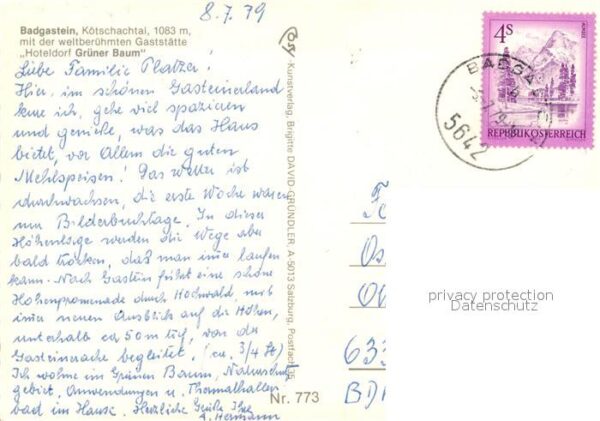 8.7.79
Badgastein, Kötschachtal, 1083 m,
mit der weltberühmten Gaststätte
„Hoteldorf Grüner Baum"
Liebe Familie Platzer!
Hier, im schönen Gasteinerland
kure ich, gehe viel spazieren
und genieße, was das Haus
bietet, vor Allem die guten
Mehlspeisen! Das Wetter ist
durchwachsen, die erste Woche waren
nur Bilderbuchtage. In dieser
Höhenlage werden die Wege aber
bald trocken, daß man immer laufen
kann. Nach Gastein führt eine schöne
Höhenpromenade durch Hochwald, mit
immer neuen Ausblick auf die Höhen,
unterhalb ca 50 m tief, von der
Gasteinerache begleitet. (ca. 3/4 St)
Ich wohne im Grünen Baum, Naturschutz
gebiet, Anwendungen u. Thermalhallen
bad im Hause. Herzliche Grüße Ihre
A. Hermann
Kunstverlag, Brigitte DAVID-GRÜNDLER, A-5013 Salzburg, Postfach
Nr. 773
4S
REPUBLIK ÖSTERREICH
BADGA
5642
633
BD
privacy protection
Datenschutz